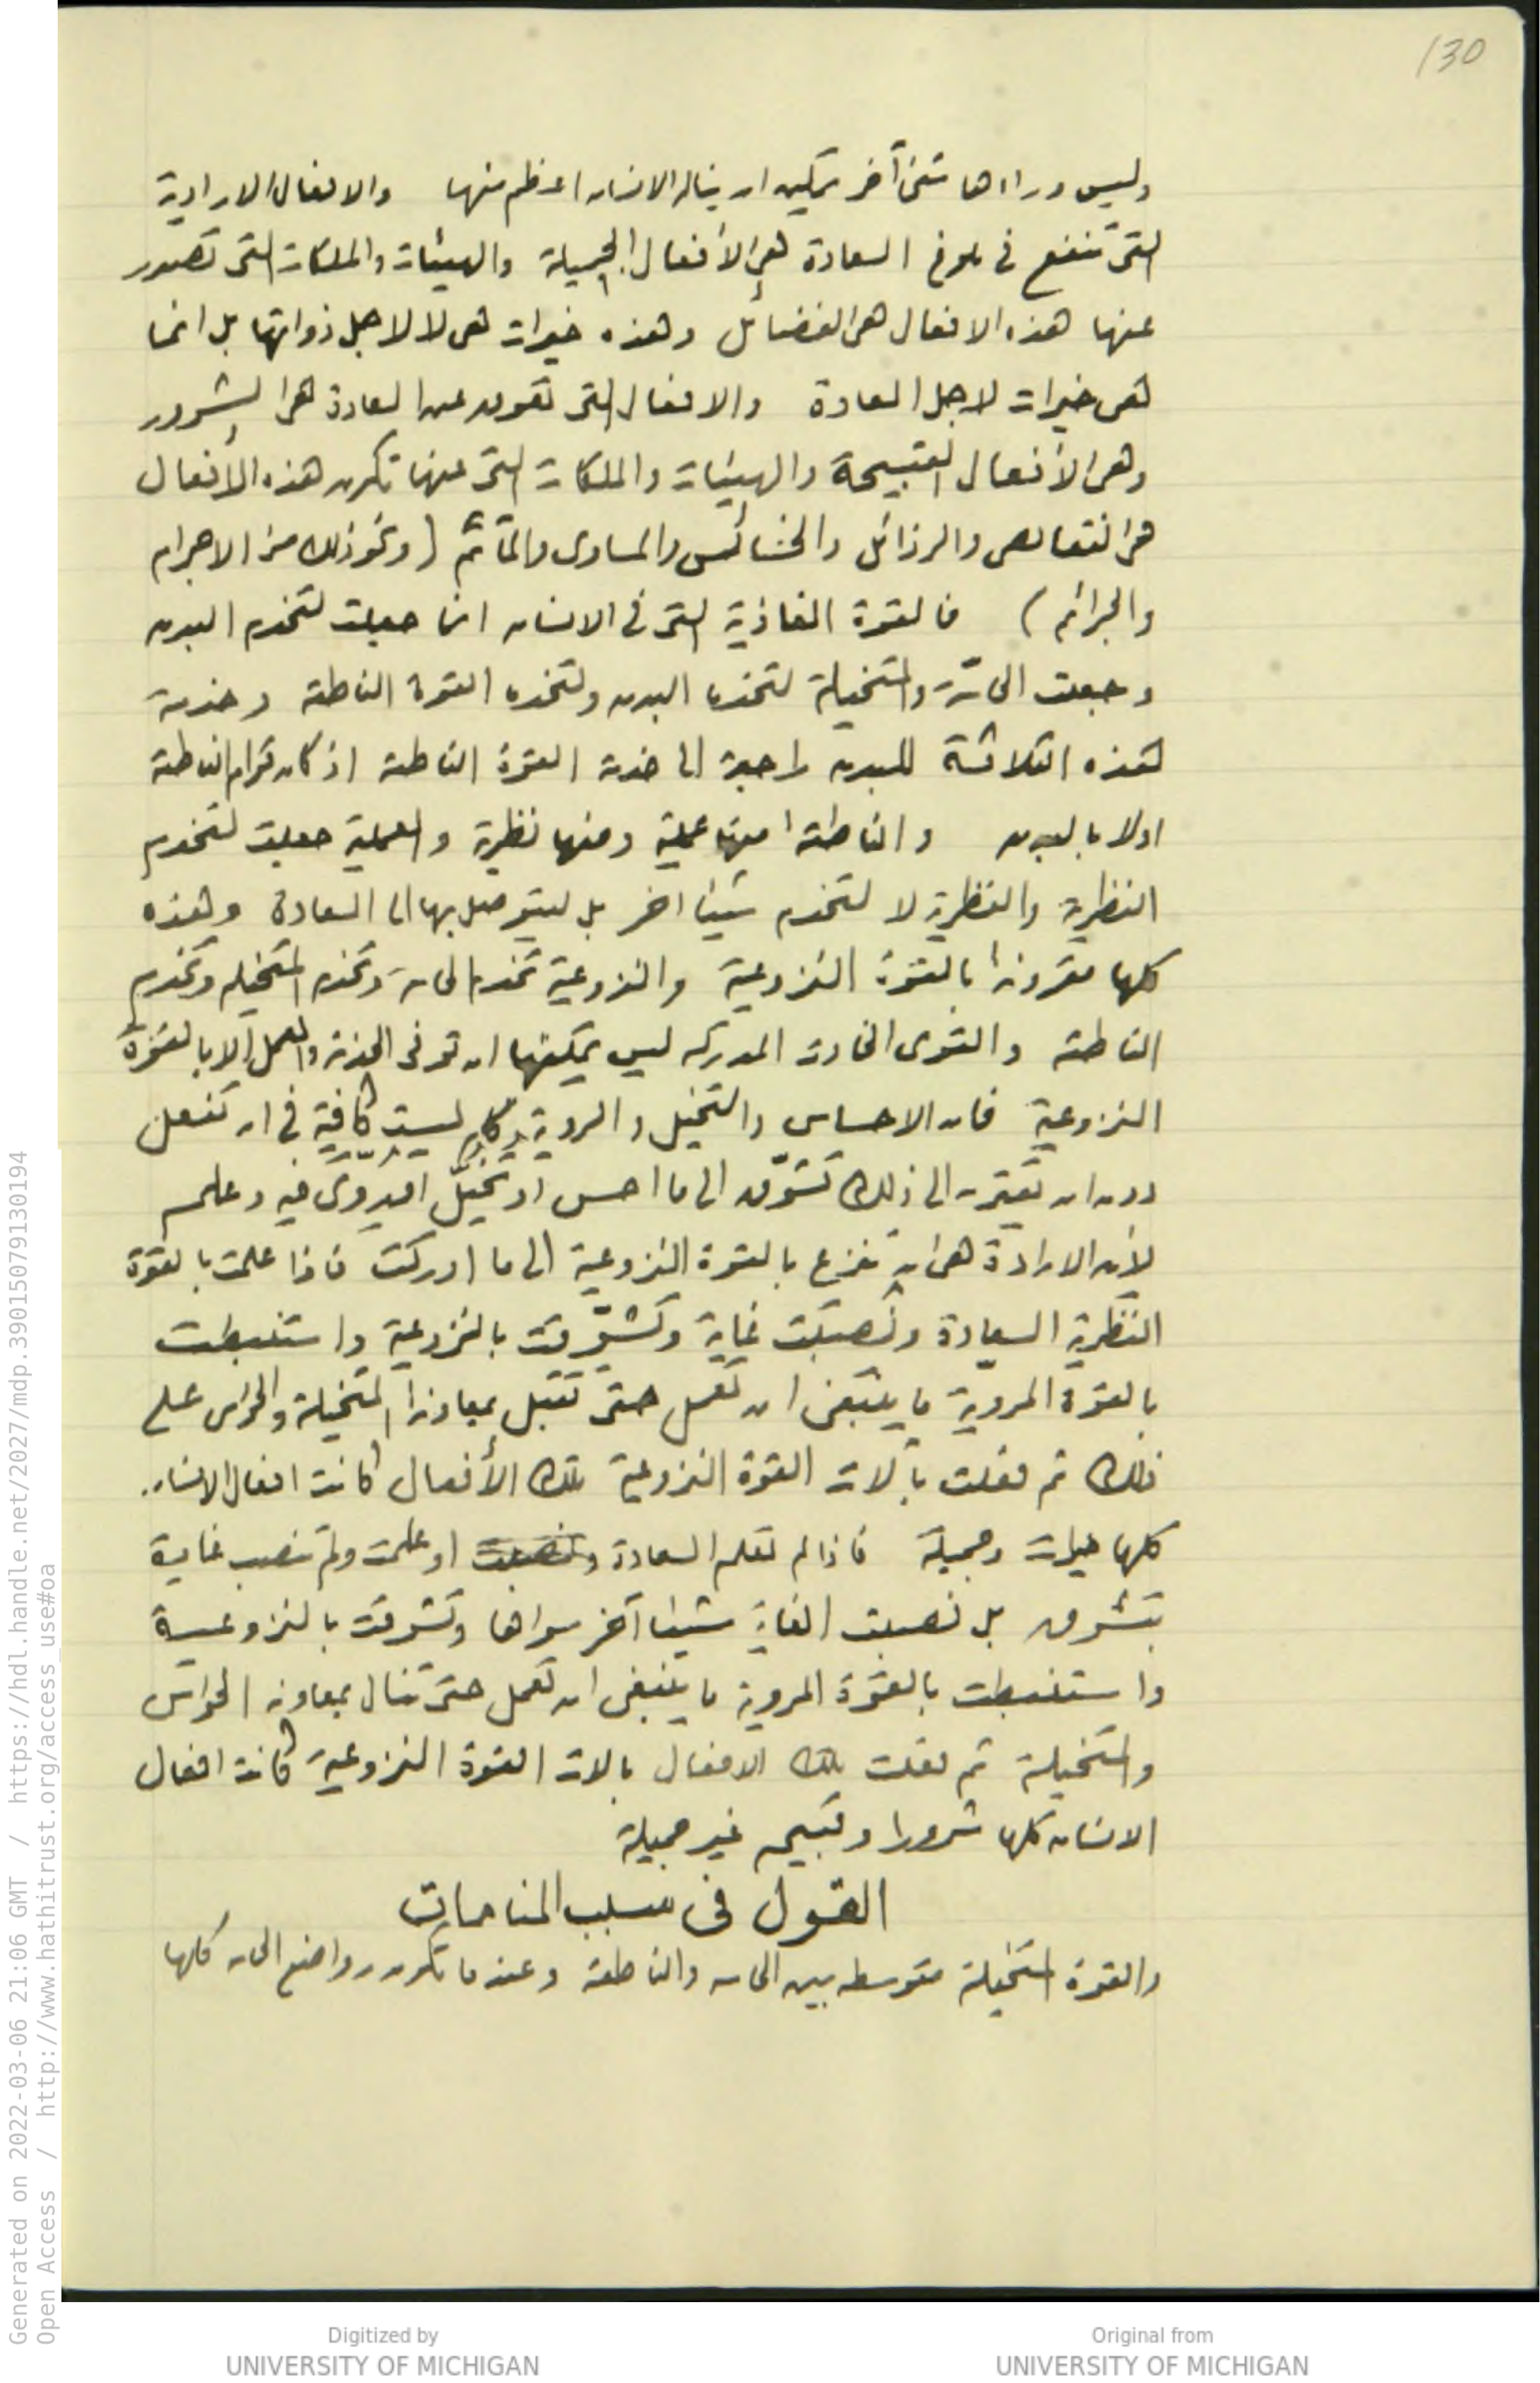 130
وليس وراءها شئ آخر يمكن ان يناله الانسان اعظم منها والافعال الارادية
التى تنفع فى بلوغ السعادة هى الأفعال الجميلة والهيئات والملكات التى تصدر
عنها هذه الافعال هى الفضائل وهذه خيرات هى لا لاجل ذواتها بل انما
هى خيرات لاجل السعادة والافعال التى تعوق عن السعادة هى الشرور
وهى الأفعال القبيحة والهيئات والملكات التى عنها تكون هذه الافعال
هى النقائص والرذائل والخسائس والمساوى والمآثم (ونحو ذلك من الاجرام
والجرائم) فالقوة الغاذية التى فى الانسان انما جعلت لتخدم البدن
وجعلت الحاسّة والمتخيلة لتخدما البدن ولتخدما القوة الناطقة وخدمة
هذه الثلاثة للبدن راجعة الى خدمة القوة الناطقة اذ كان قوام الناطقة
اولا بالبدن والناطقة منها عملية ومنها نظرية والعملية جعلت لتخدم
النظرية والنظرية لا لتخدم شيئا اخر بل ليتوصل بها الى السعادة وهذه
كلها مقرونة بالقوة النزوعية والنزوعية تخدم الحاسة وتخدم المتخيله وتخدم
الناطقة والقوى الخادمة المدركه ليس يمكنها ان توفى الخدمة والعمل الا بالقوة
النزوعية فان الاحساس والتخيل والروية ليست كافية فى ان تفعل
دون ان يقترن الى ذلك تشوّق الى ما احس او تخيّل او روى فيه وعلم
لأن الارادة هى ان تنزع بالقوة النزوعية الى ما ادركت فاذا علمت بالقوة
النظرية السعادة ونُصبت غاية وتشوّقت بالنزوعية واستنبطت
بالقوة المروية ما ينبغى ان تعمل حتى تقبل بمعاونة المتخيلة والحواس على
ذلك ثم فعلت بآلات القوة النزوعية تلك الأفعال كانت افعال الانسان
كلها خيرات وجميلة فاذا لم تعلم السعادة او علمت ولم تنصب غاية
بتشوق بل نصبت الغاية شيئا آخر سواها وتشوقت بالنزوعية
واستنبطت بالقوة المروية ما ينبغى ان تعمل حتى تنال بمعاونة الحواس
والمتخيلة ثم فعلت تلك الافعال بالات القوة النزوعية كانت افعال
الانسان كلها شرورا وقبيحه غير جميلة
القول فى سبب المنامات
والقوة المتخيلة متوسطه بين الحاسه والناطقة وعندما تكون رواضع الحاسه كلها
Generated on 2022-03-06 21:06 GMT / https://hdl.handle.net/2027/mdp.39015079130194
Open Access / http://www.hathitrust.org/access_use#oa
Digitized by
UNIVERSITY OF MICHIGAN
Original from
UNIVERSITY OF MICHIGAN